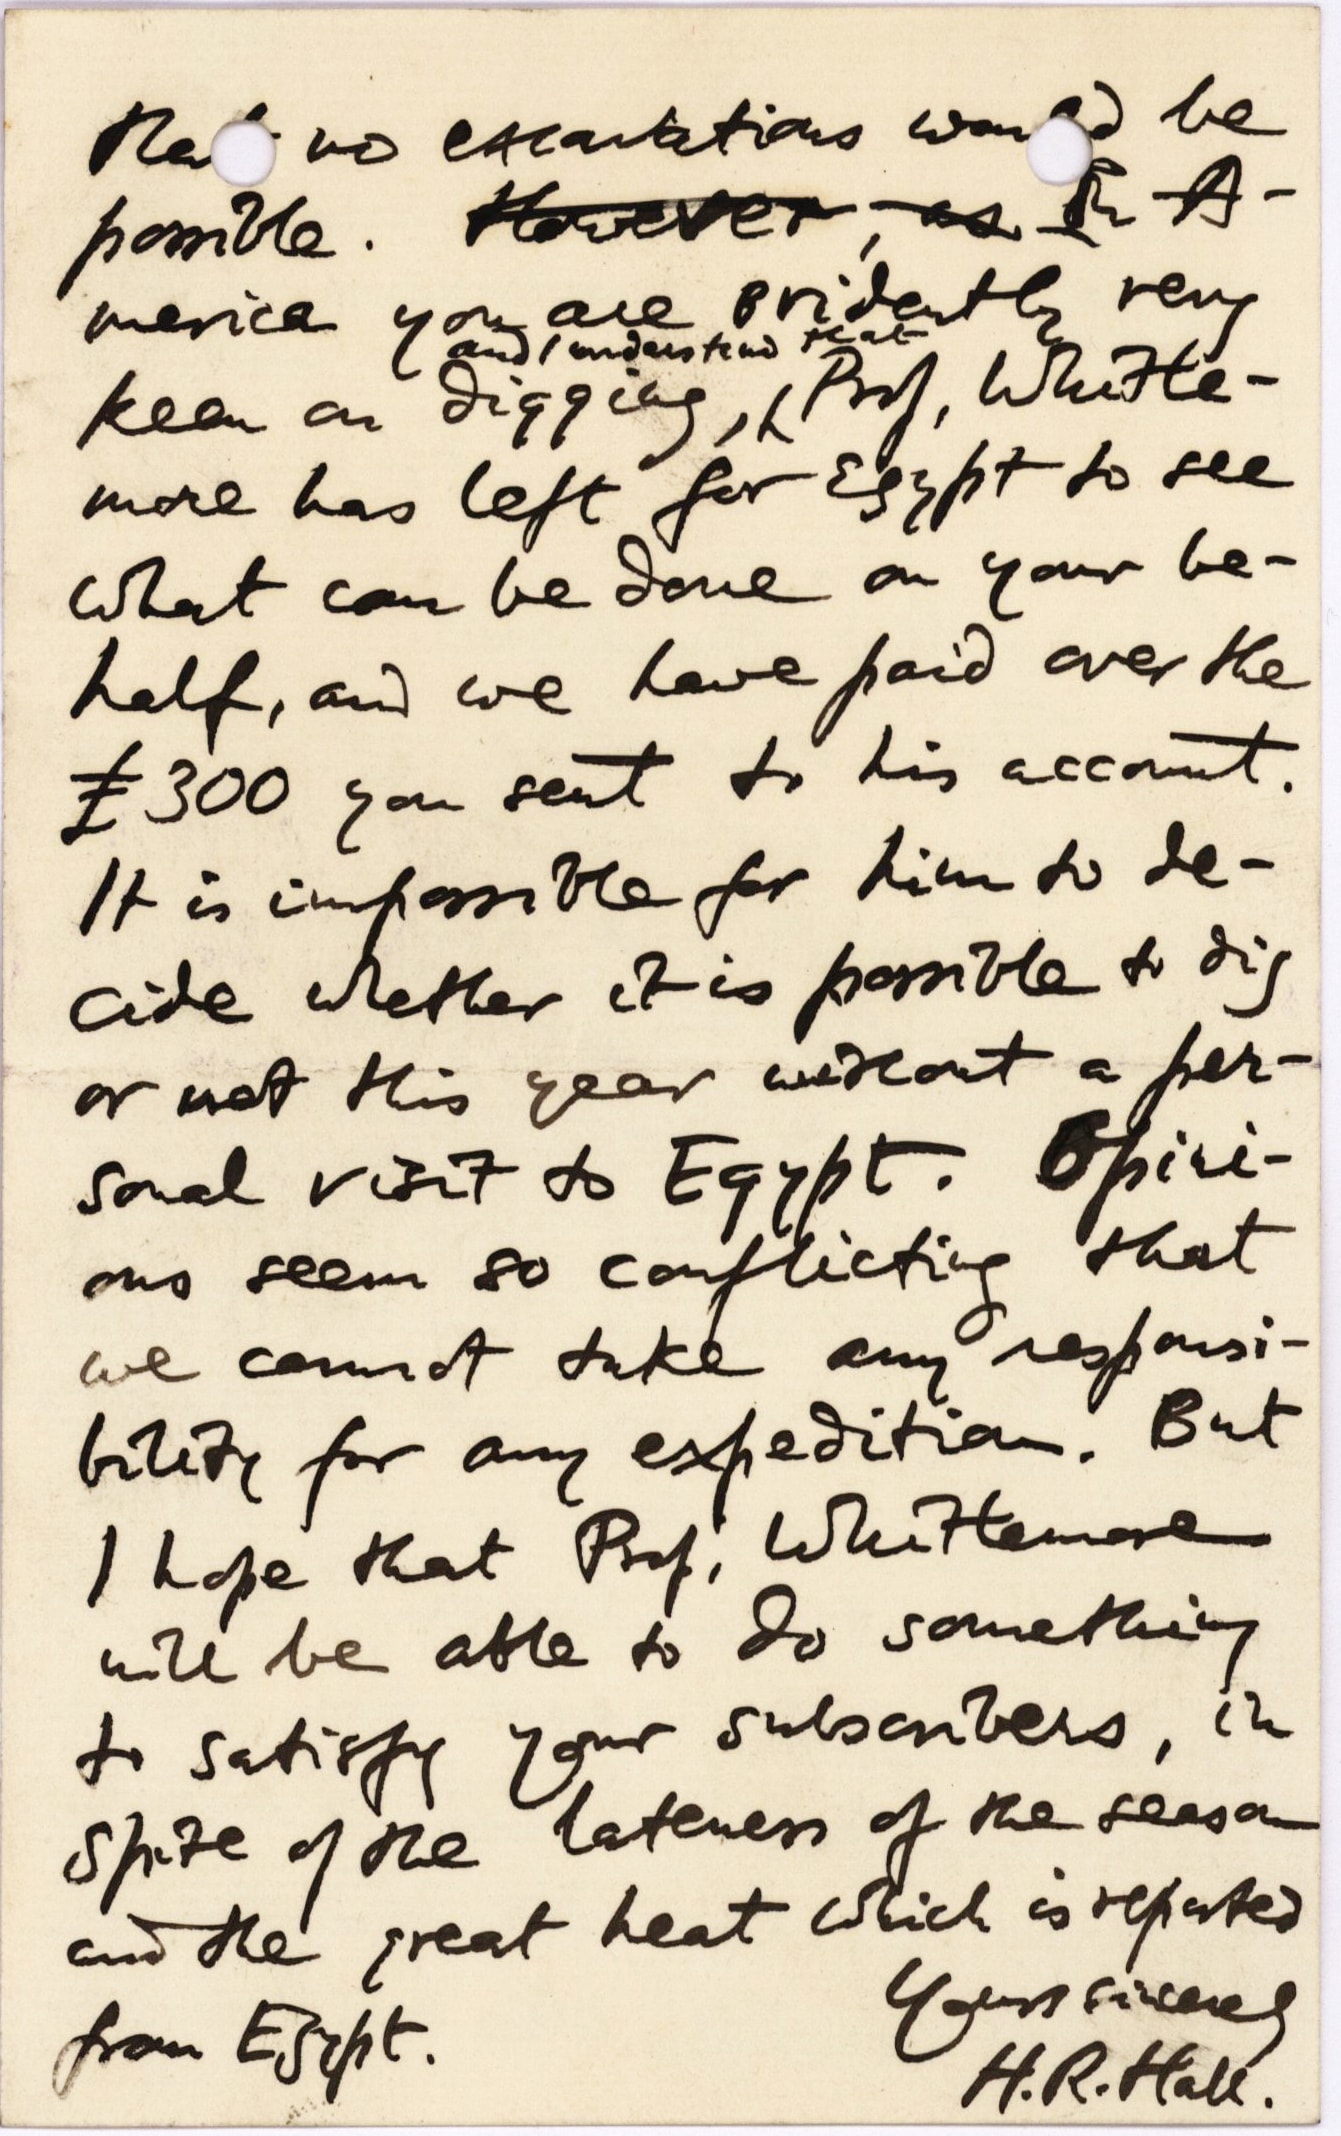 that no excavations would be
possible. However, as In A-
merica you are evidently very
and I understand that
keen on digging, Prof. Whitte-
more has left for Egypt to see
what can be done on your be-
half, and we have paid over the
£300 you sent to his account.
It is impossible for him to de-
cide whether it is possible to dig
or not this year without a per-
sonal visit to Egypt. Opini-
ons seem so conflicting that
we cannot take any responsi-
bility for any expedition. But
I hope that Prof. Whittemore
will be able to do something
to satisfy your subscribers, in
spite of the lateness of the season
and the great heat which is reported
from Egypt.
Yours sincerely
H.R. Hall.